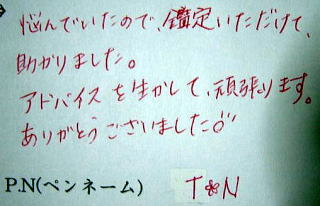 悩んでいたので、鑑定いただけて、
助かりました。
アドバイスを生かして、頑張ります。
ありがとうございました
P.N(ペンネーム) T❀N